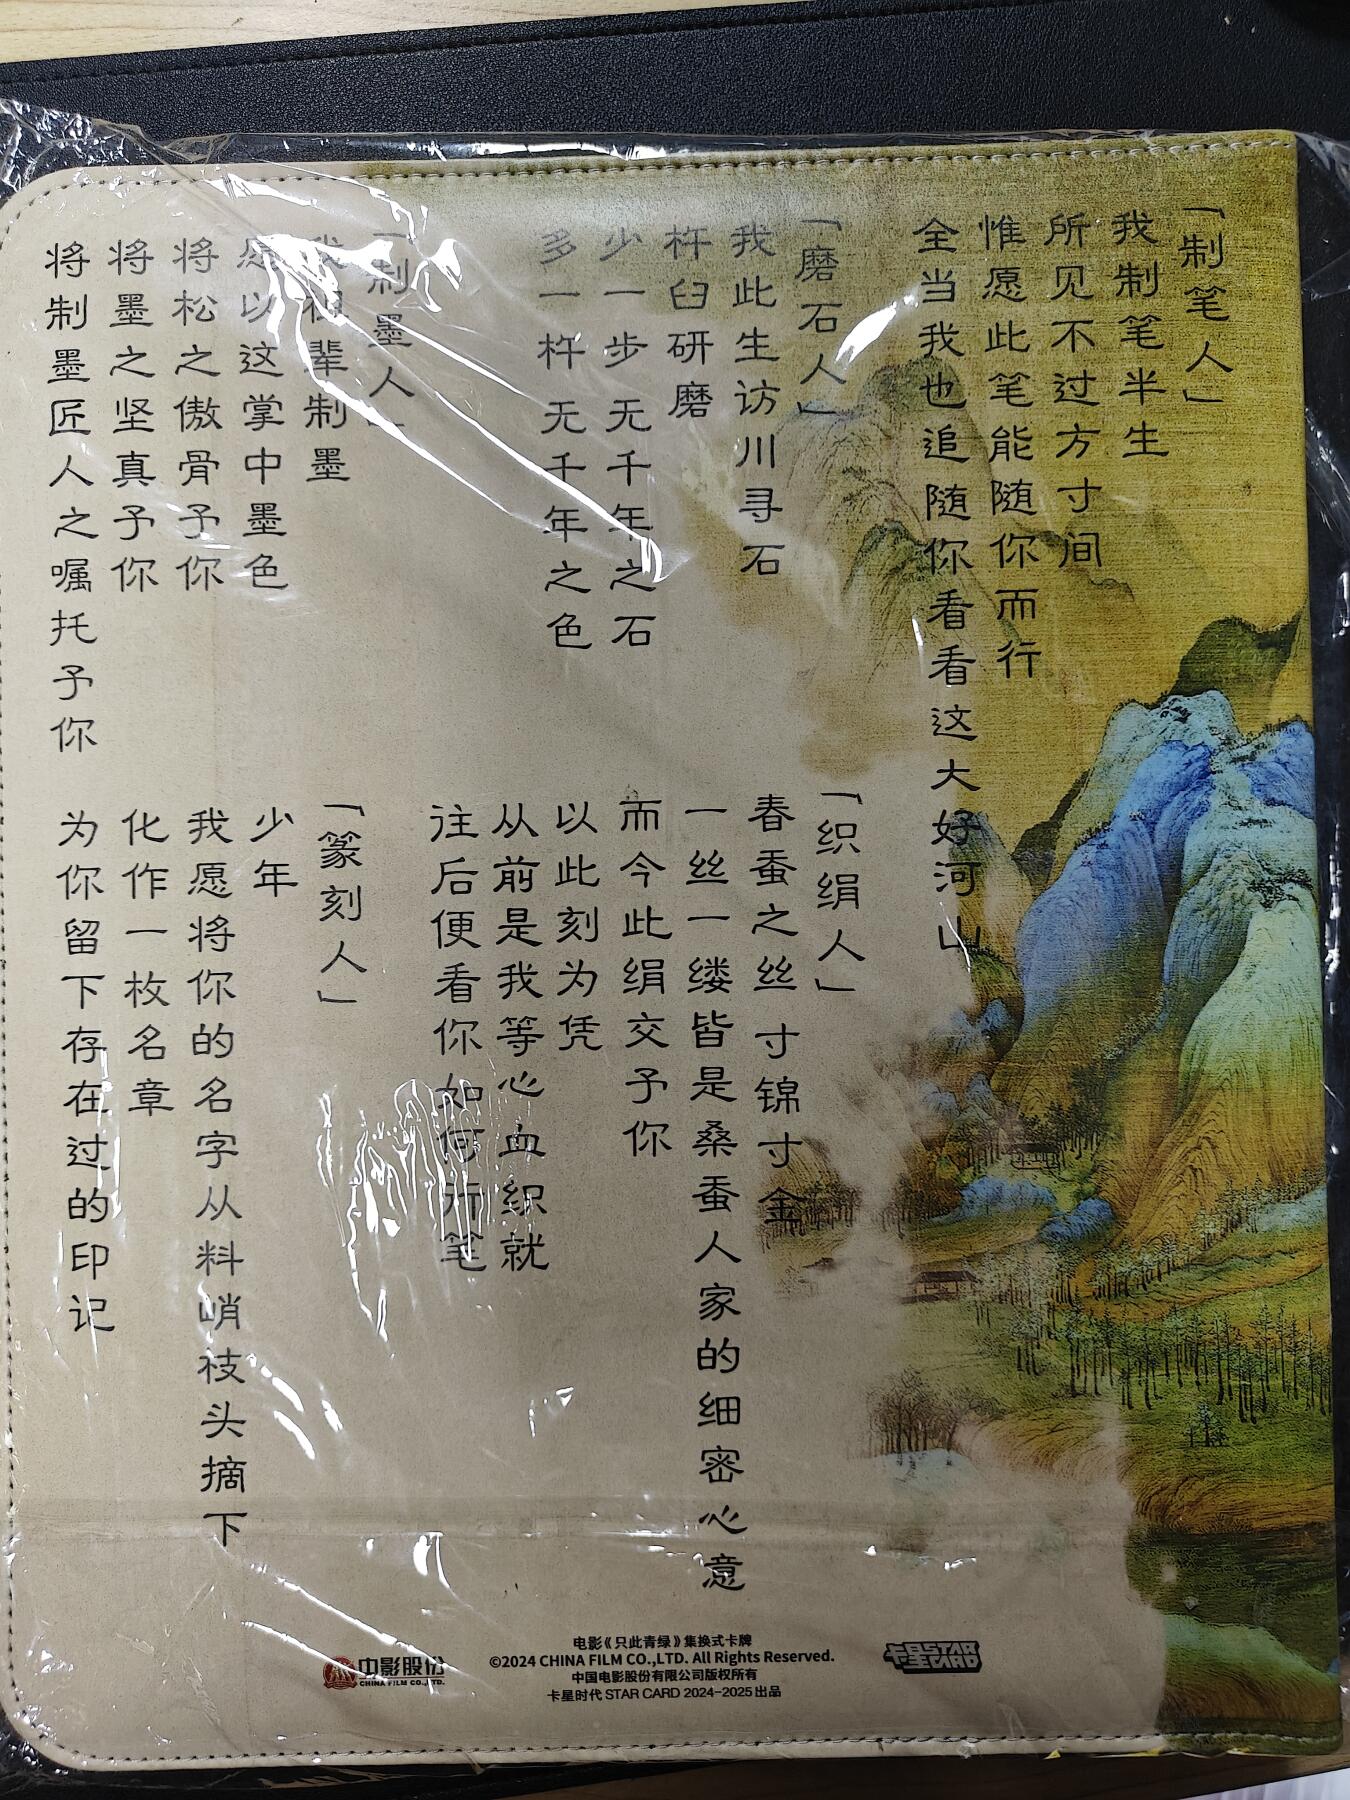 「制笔人」
我制笔半生
所见不过方寸间
惟愿此笔能随你而行
全当我也追随你看看这大好河山
「磨石人」
我此生访川寻石
杵臼研磨
少一步 无千年之石
多一杵 无千年之色
「制墨人」
我祖辈制墨
愿以这掌中墨色
将松之傲骨予你
将墨之坚真予你
将制墨匠人之嘱托予你
「织绢人」
春蚕之丝 寸锦寸金
一丝一缕皆是桑蚕人家的细密心意
而今此绢交予你
以此刻为凭
从前是我等心血织就
往后便看你如何行笔
「篆刻人」
少年
我愿将你的名字从料峭枝头摘下
化作一枚名章
为你留下存在过的印记
中影股份
CHINA FILM CO.,LTD.
电影《只此青绿》集换式卡牌
©2024 CHINA FILM CO.,LTD. All Rights Reserved.
中国电影股份有限公司版权所有
卡星时代 STAR CARD 2024-2025出品
卡星STAR CARD